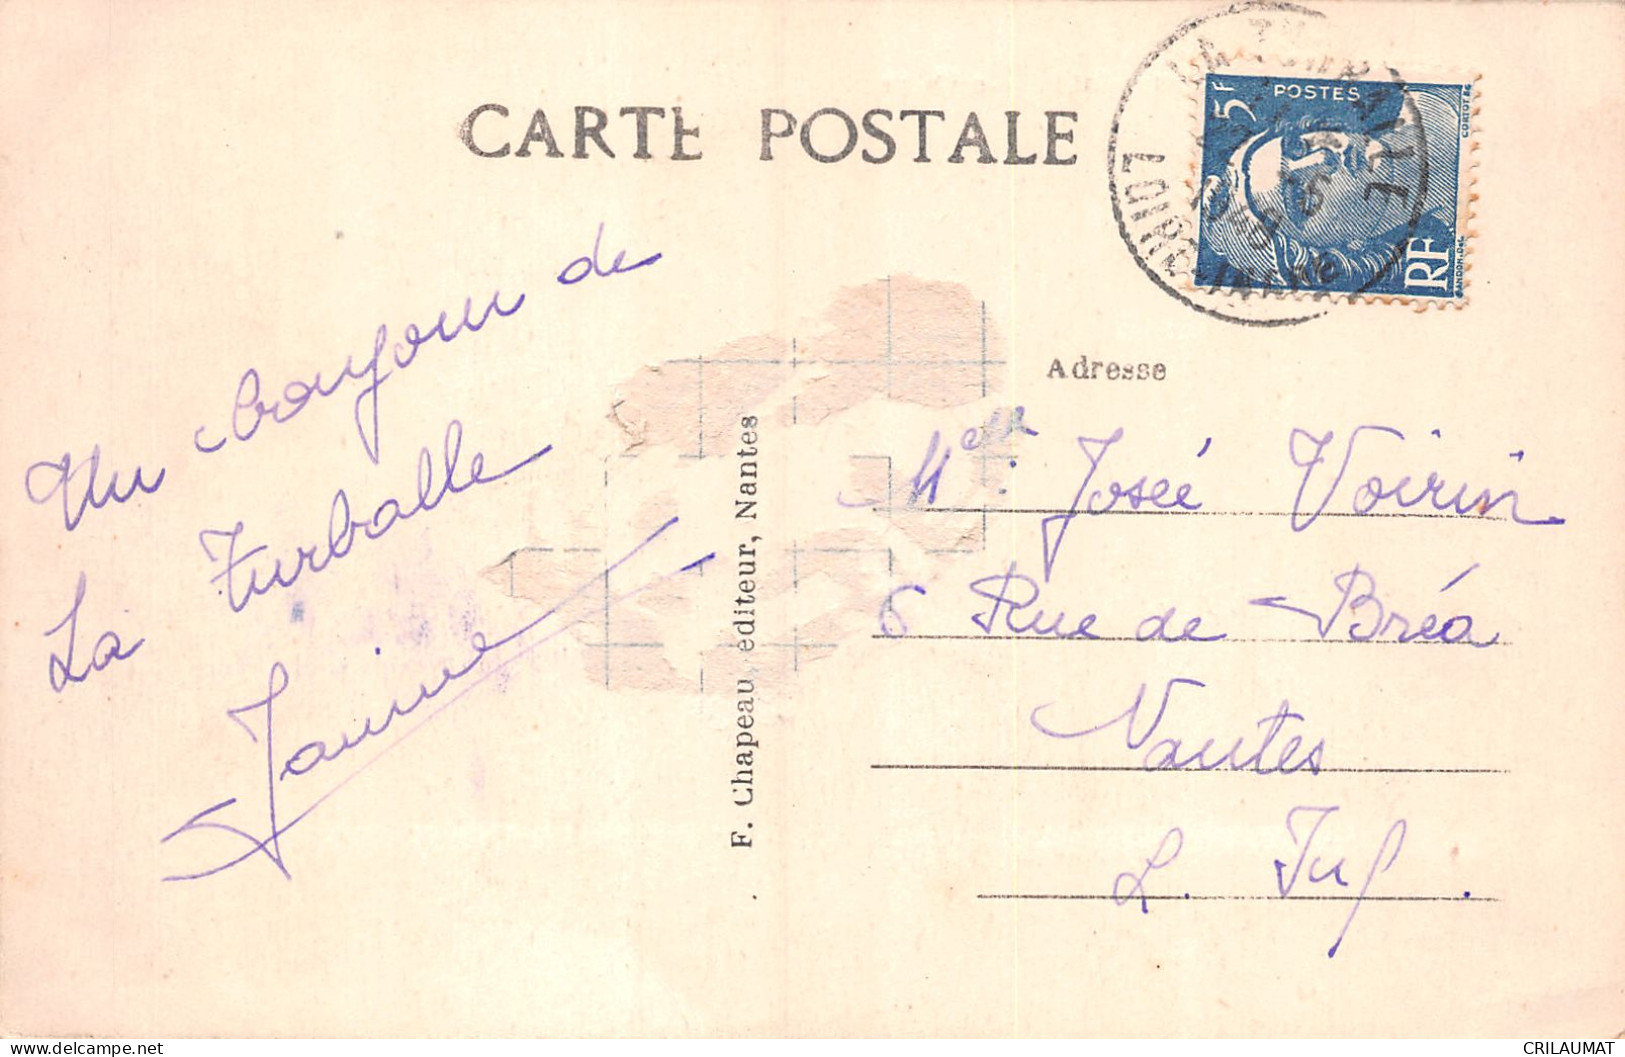 CARTE POSTALE
LA TURBALLE
LOIRE-INFRE
1950
5F
POSTES
RF
Un bonjour de
La Turballe
Janine
F. Chapeau, éditeur, Nantes
Adresse
Melle. Josée Voirin
6 Rue de Bréa
Nantes
L. Inf.
CRILAUMAT